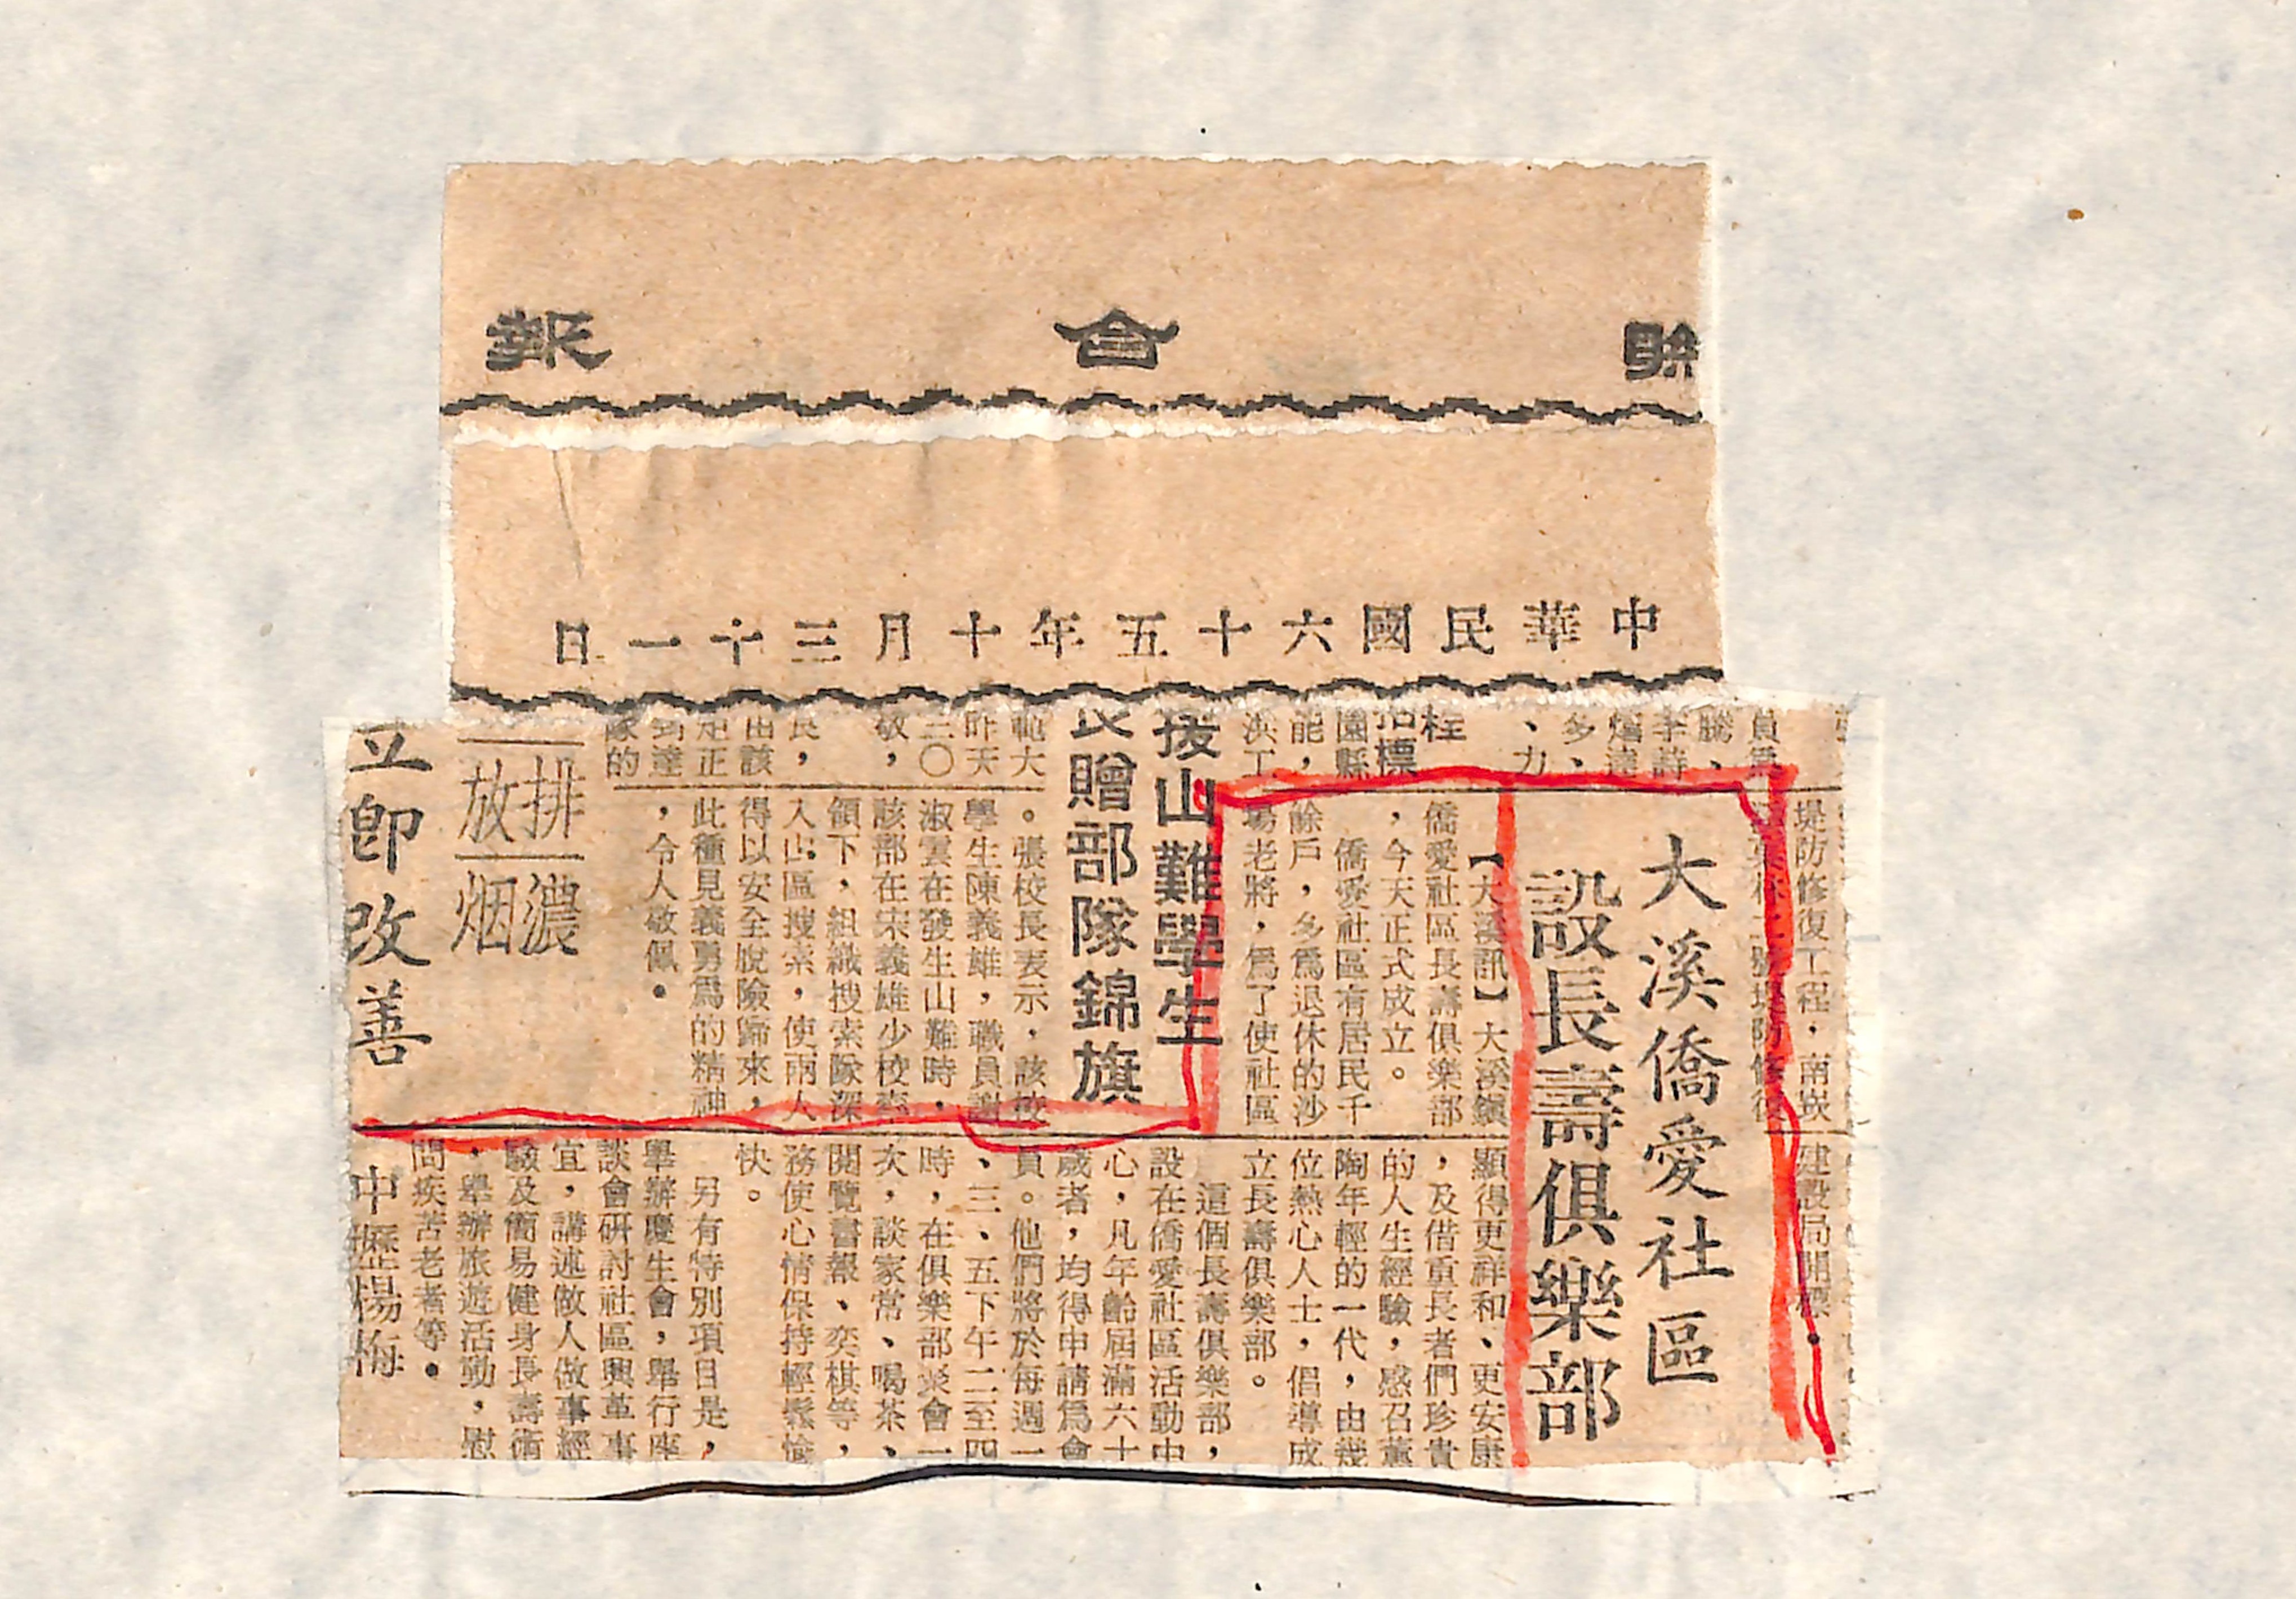 聯合報
中華民國六十五年十月三十一日
大溪僑愛社區
設長壽俱樂部
【大溪訊】大溪鎮
僑愛社區長壽俱樂部
，今天正式成立。
僑愛社區有居民千
餘戶，多為退休的沙
場老將，為了使社區
顯得更祥和、更安康
，及借重長者們珍貴
的人生經驗，感召薰
陶年輕的一代，由幾
位熱心人士，倡導成
立長壽俱樂部。
這個長壽俱樂部，
設在僑愛社區活動中
心，凡年齡屆滿六十
歲者，均得申請為會
員。他們將於每週一
、三、五下午二至四
時，在俱樂部聚會一
次，談家常、喝茶、
閱覽書報、奕棋等，
務使心情保持輕鬆愉
快。
另有特別項目是，
舉辦慶生會，舉行座
談會研討社區興革事
宜，講述做人做事經
驗及簡易健身長壽術
，舉辦旅遊活動，慰
問疾苦老者等。
堤防修復工程，南崁
建設局開標。
程
招標
園縣
能，
洪工
援山難學生
長贈部隊錦旗
範大
昨天
二〇
敏，
長，
出該
正
到達
隊的
。張校長表示，該校
學生陳義雄，職員謝
淑雲在發生山難時，
該部在宋義雄少校率
領下，組織搜索隊深
入山區搜索，使兩人
得以安全脫險歸來，
此種見義勇為的精神
，令人敬佩。
排放
濃烟
立即改善
中壢楊梅